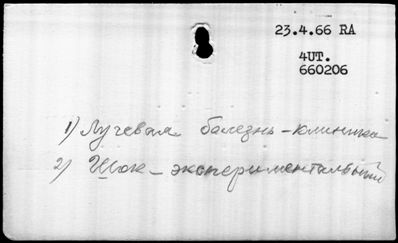 23.4.66 RA
4UT.
660206
1) Лучевая болезнь - клиника
2) Шок - экспериментальный